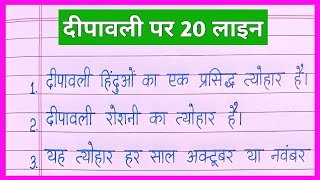 दीपावली पर 20 लाइन
1. दीपावली हिंदुओं का एक प्रसिद्ध त्योहार है।
2. दीपावली रोशनी का त्योहार है।
3. यह त्योहार हर साल अक्टूबर या नवंबर